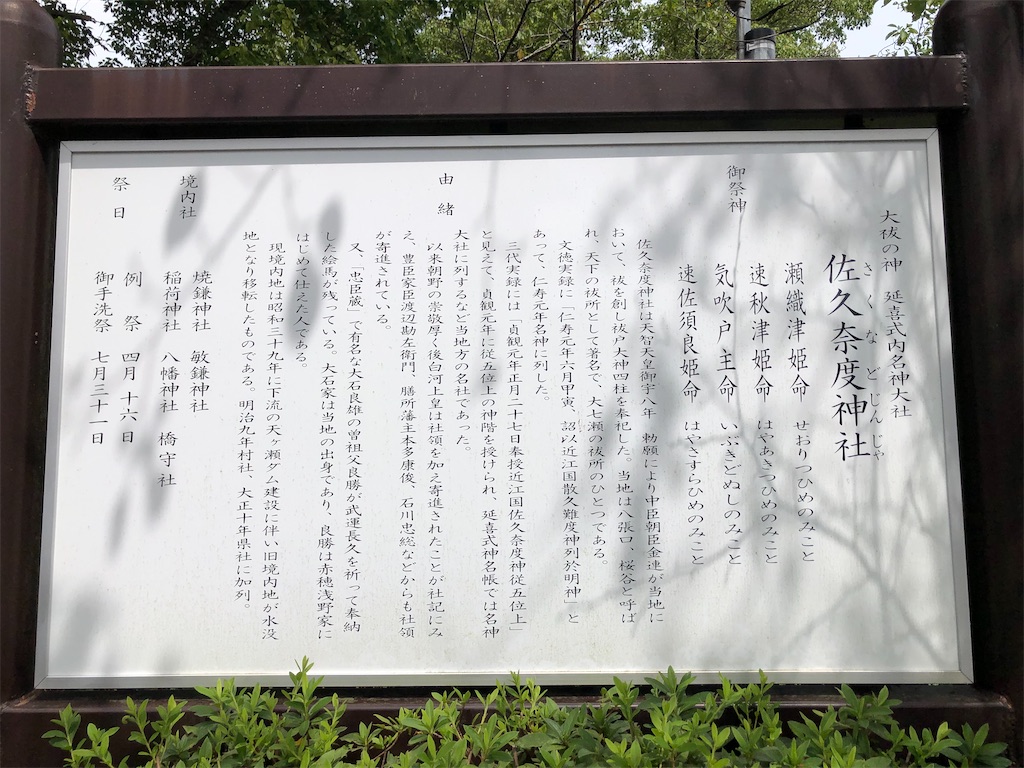 大祓の神　延喜式内名神大社
佐久奈度神社
さくなどじんじゃ
御祭神
瀬織津姫命　せおりつひめのみこと
速秋津姫命　はやあきつひめのみこと
気吹戸主命　いぶきどぬしのみこと
速佐須良姫命　はやさすらひめのみこと
由緒
佐久奈度神社は天智天皇御宇八年　勅願により中臣朝臣金連が当地に
おいて、祓を創し祓戸大神四柱を奉祀した。当地は八張口、桜谷と呼ば
れ、天下の祓所として著名で、大七瀬の祓所のひとつである。
文徳実録に「仁寿元年六月甲寅、詔以近江国散久難度神列於明神」と
あって、仁寿元年名神に列した。
三代実録には「貞観元年正月二十七日奉授近江国佐久奈度神従五位上」
と見えて、貞観元年に従五位上の神階を授けられ、延喜式神名帳では名神
大社に列するなど当地方の名社であった。
以来朝野の崇敬厚く後白河上皇は社領を加え寄進されたことが社記にみ
え、豊臣家臣渡辺勘左衛門、膳所藩主本多康俊、石川忠総などからも社領
が寄進されている。
又、「忠臣蔵」で有名な大石良雄の曽祖父良勝が武運長久を祈って奉納
した絵馬が残っている。大石家は当地の出身であり、良勝は赤穂浅野家に
はじめて仕えた人である。
現境内地は昭和三十九年に下流の天ヶ瀬ダム建設に伴い旧境内地が水没
地となり移転したものである。明治九年村社、大正十年県社に加列。
境内社
焼鎌神社　敏鎌神社
稲荷神社　八幡神社　橋守社
祭日
例祭　四月十六日
御手洗祭　七月三十一日